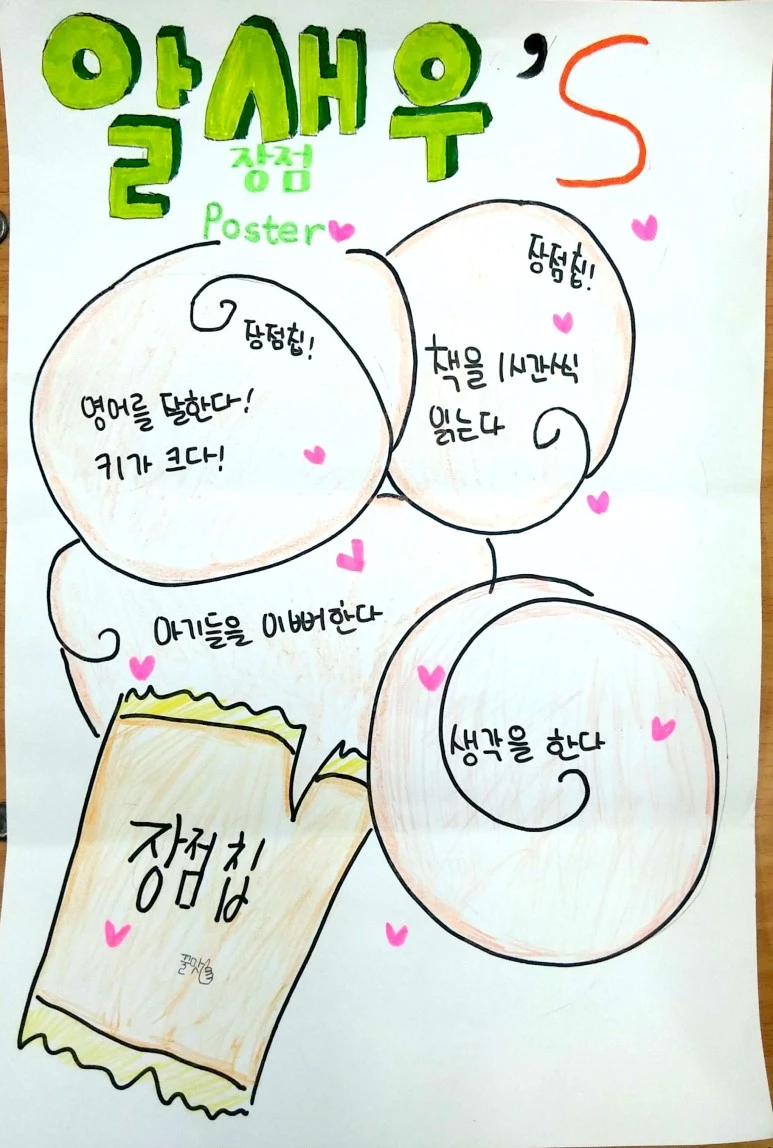 알새우's
장점
Poster
장점칩!
영어를 잘한다!
키가 크다!
장점칩!
책을 1시간씩
읽는다
아기들을 이뻐한다
생각을 한다
장점칩
꿀맛